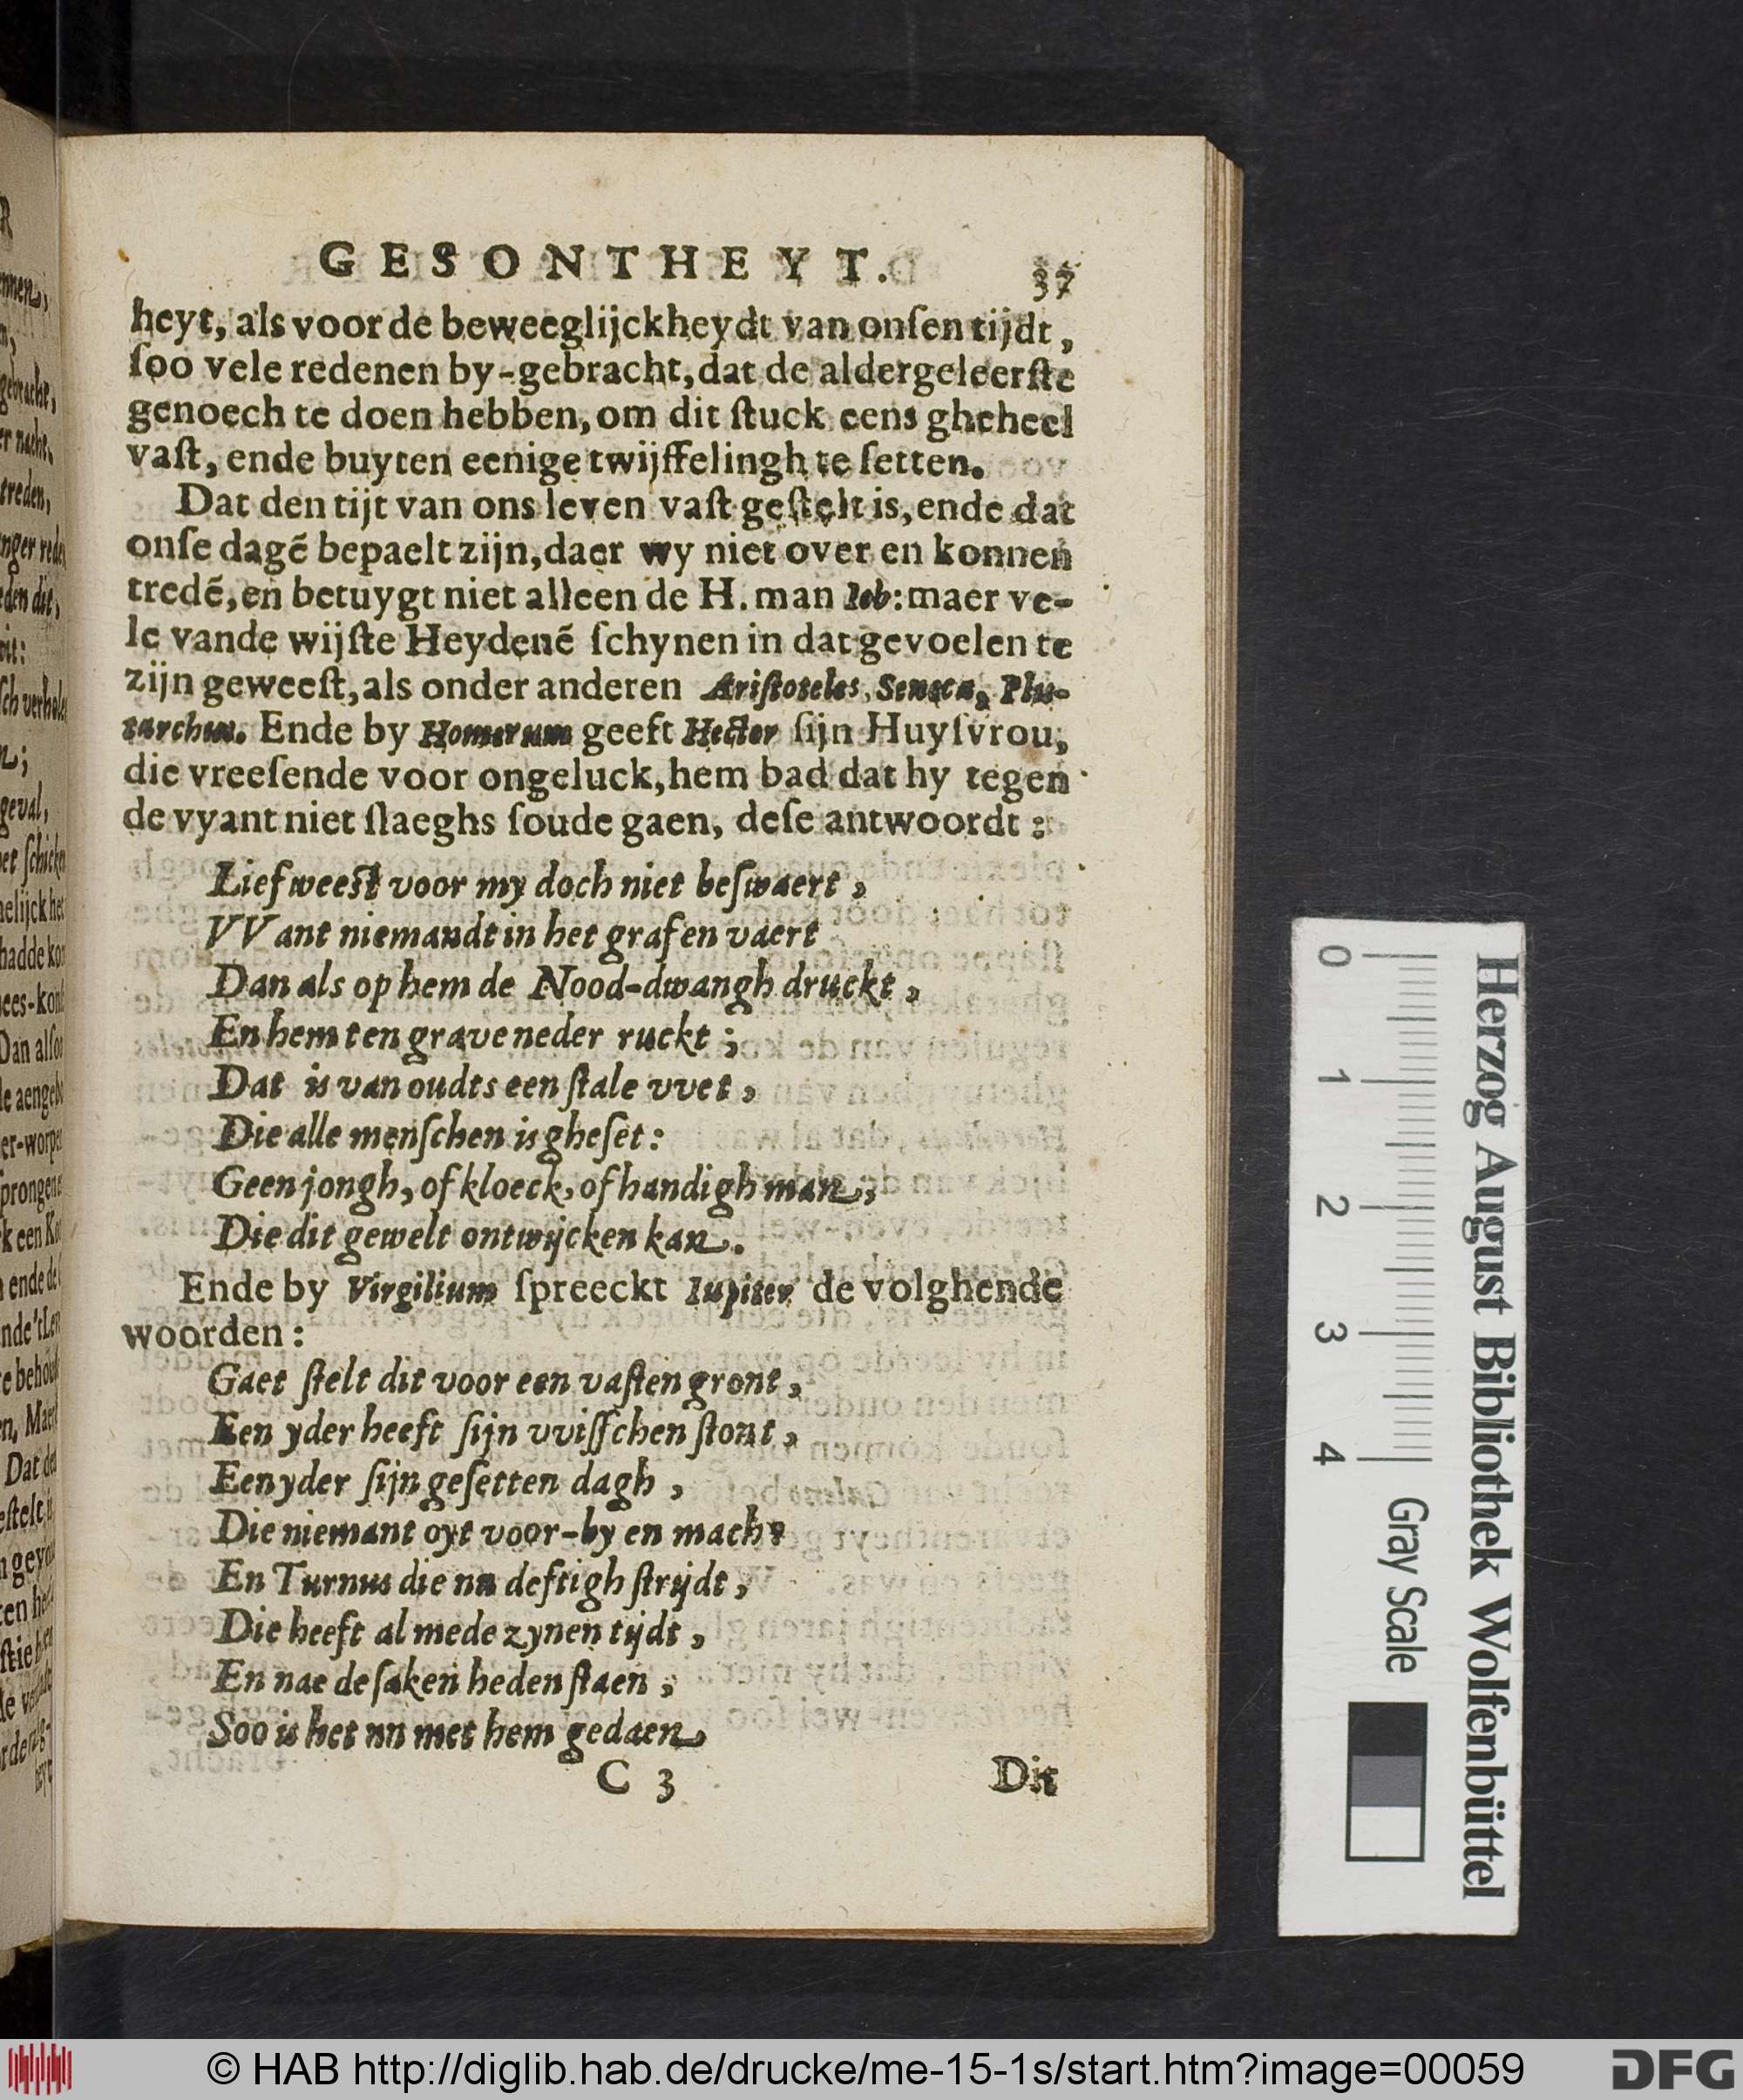 GESONTHEYT. 37
heyt, als voor de beweeglijckheydt van onſen tijdt,
ſoo vele redenen by-gebracht, dat de aldergeleerſte
genoech te doen hebben, om dit ſtuck eens gheheel
vaſt, ende buyten eenige twijffelingh te ſetten.
Dat den tijt van ons leven vaſt geſtelt is, ende dat
onſe dagẽ bepaelt zijn, daer wy niet over en konnen
tredẽ, en betuygt niet alleen de H. man Iob: maer ve-
le vande wijſte Heydenẽ ſchynen in dat gevoelen te
zijn geweeſt, als onder anderen Ariſtoteles, Seneca, Plu-
tarchus. Ende by Homerum geeft Hector ſijn Huyſvrou,
die vreeſende voor ongeluck, hem bad dat hy tegen
de vyant niet ſlaeghs ſoude gaen, deſe antwoordt:
Lief weeſt voor my doch niet beſwaert,
VVant niemandt in het graf en vaert
Dan als op hem de Nood-dwangh druckt,
En hem ten grave neder ruckt;
Dat is van oudts een ſtale vvet,
Die alle menſchen is gheſet:
Geen jongh, of kloeck, of handigh man,
Die dit gewelt ontwijcken kan.
Ende by Virgilium ſpreeckt Iupiter de volghende
woorden:
Gaet ſtelt dit voor een vaſten gront,
Een yder heeft ſijn vviſſchen ſtont,
Een yder ſijn geſetten dagh,
Die niemant oyt voor-by en mach:
En Turnus die nu deftigh ſtrijdt,
Die heeft al mede zynen tijdt,
En nae de ſaken heden ſtaen,
Soo is het nu met hem gedaen.
C 3 Dit
0 1 2 3 4 Gray Scale
Herzog August Bibliothek Wolfenbüttel
© HAB http://diglib.hab.de/drucke/me-15-1s/start.htm?image=00059 DFG